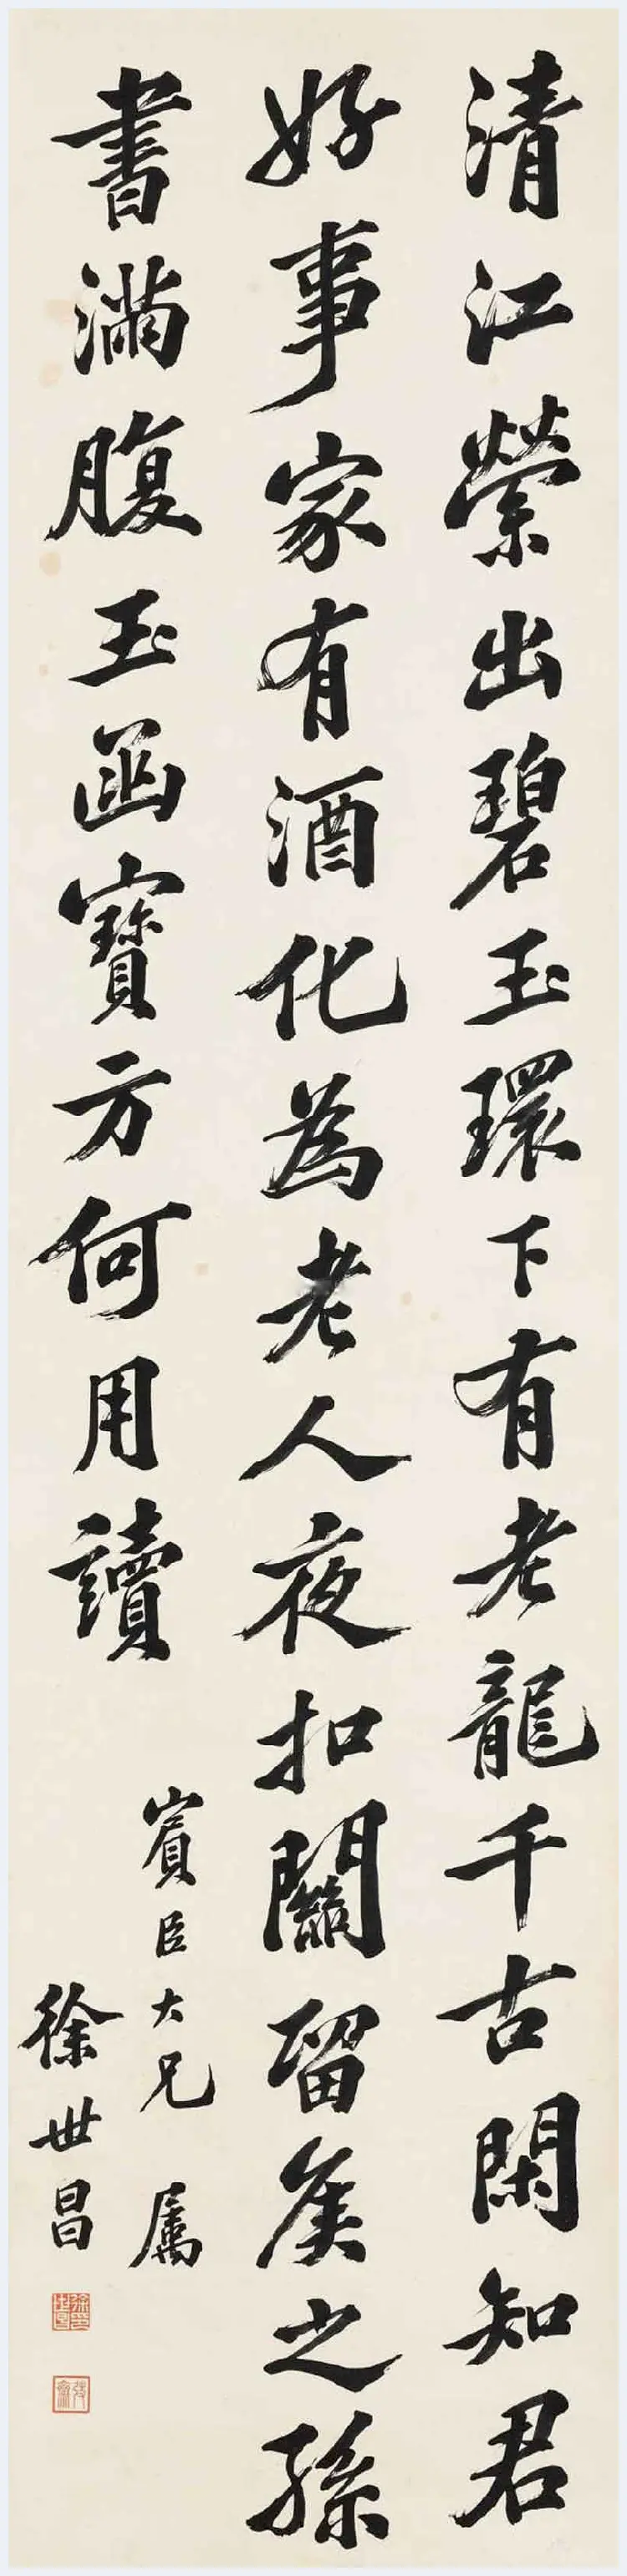 清江縈出碧玉環下有老龍千古閑知君
好事家有酒化為老人夜扣關留矦之孫
書滿腹玉函寶方何用讀
賓臣大兄 属
徐世昌